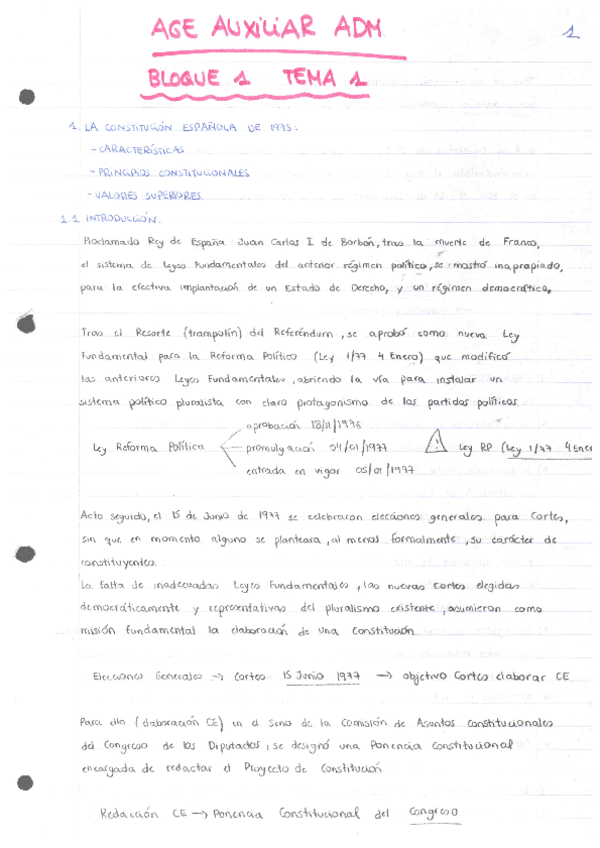 AGE AUXILIAR ADM
1
BLOQUE 1 TEMA 1
1. LA CONSTITUCIÓN ESPAÑOLA DE 1975:
- CARACTERÍSTICAS
- PRINCIPIOS CONSTITUCIONALES
- VALORES SUPERIORES
1.1 INTRODUCCIÓN.
Proclamado Rey de España Juan Carlos I de Borbón, tras la muerte de Franco,
el sistema de Leyes Fundamentales del anterior régimen político, se mostró inapropiado,
para la efectiva implantación de un Estado de Derecho, y un régimen democrático.
Tras el Resorte (trampolín) del Referéndum, se aprobó como nueva Ley
Fundamental para la Reforma Político (Ley 1/77 4 Enero) que modificó
las anteriores Leyes Fundamentales, abriendo la vía para instalar un
sistema político pluralista con claro protagonismo de los partidos políticos.
aprobación 18/11/1976
Ley Reforma Política promulgación 04/01/1977 Ley RP (Ley 1/77 4 Ener
entrada en vigor 05/01/1977
Acto seguido, el 15 de Junio de 1977 se celebraron elecciones generales para Cortes,
sin que en momento alguno se planteara, al menos formalmente, su carácter de
constituyentes.
La falta de inadecuadas Leyes Fundamentales, las nuevas cortes elegidas
democráticamente y representativas del pluralismo existente, asumieron como
misión fundamental la elaboración de una Constitución
Elecciones Generales → Cortes 15 Junio 1977 → objetivo Cortes elaborar CE
Para ello (elaboración CE) en el Seno de la Comisión de Asuntos constitucionales
del Congreso de los Diputados, se designó una Ponencia Constitucional
encargada de redactar el Proyecto de Constitución
Redacción CE → Ponencia Constitucional del Congreso